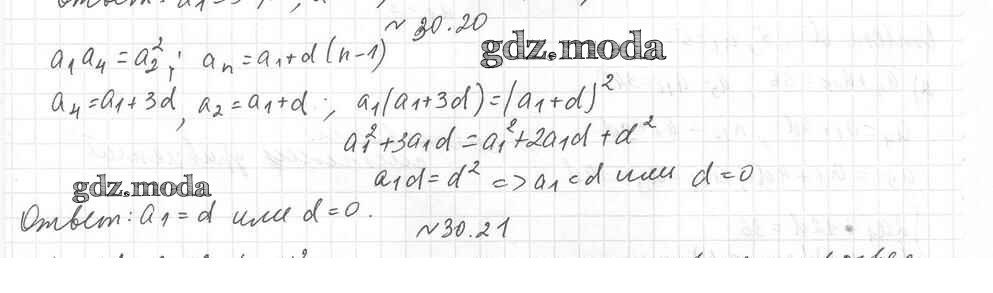 Ответ: a₁=
№ 30.20
gdz.moda
a₁a₄=a₂²; aₙ=a₁+d(n-1)
a₄=a₁+3d, a₂=a₁+d; a₁(a₁+3d)=(a₁+d)²
a₁²+3a₁d=a₁²+2a₁d+d²
a₁d=d² => a₁=d или d=0
gdz.moda
Ответ: a₁=d или d=0.
№30.21